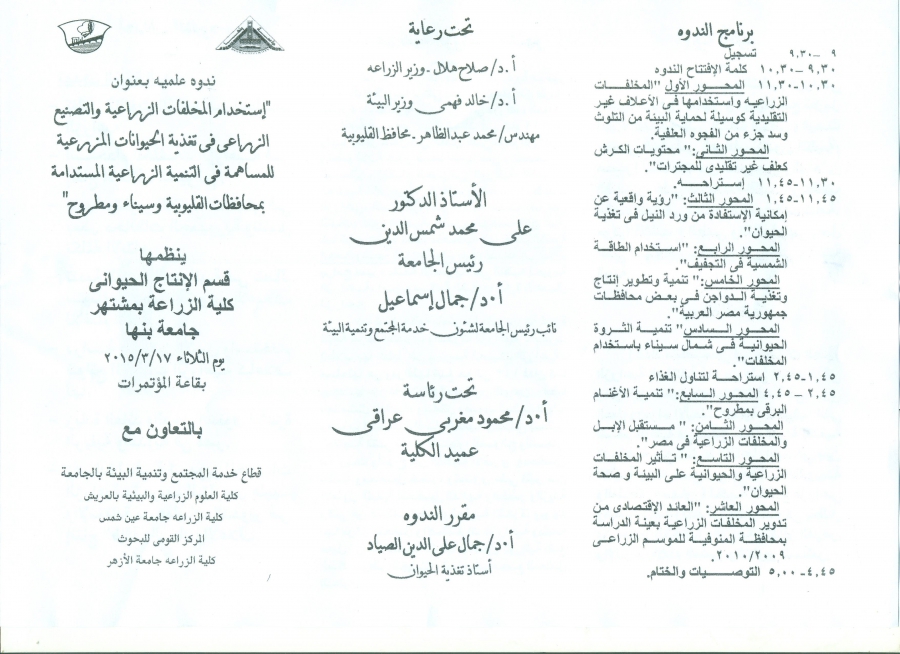 ندوه علميه بعنوان
"إستخدام المخلفات الزراعية والتصنيع
الزراعى فى تغذية الحيوانات المزرعية
للمساهمة فى التنمية الزراعية المستدامة
بمحافظات القليوبية وسيناء ومطروح"
ينظمها
قسم الإنتاج الحيوانى
كلية الزراعة بمشتهر
جامعة بنها
يوم الثلاثاء ٢٠١٥/٣/١٧
بقاعة المؤتمرات
بالتعاون مع
قطاع خدمة المجتمع وتنمية البيئة بالجامعة
كلية العلوم الزراعية والبيئية بالعريش
كلية الزراعه جامعة عين شمس
المركز القومى للبحوث
كلية الزراعه جامعة الأزهر
تحت رعاية
أ.د/صلاح هلال - وزير الزراعه
أ.د/خالد فهمى وزير البيئة
مهندس/محمد عبدالظاهر - محافظ القليوبية
الأستاذ الدكتور
على محمد شمس الدين
رئيس الجامعة
أ.د/جمال إسماعيل
نائب رئيس الجامعة لشئون خدمة المجتمع وتنمية البيئة
تحت رئاسة
أ.د/محمود مغربى عراقى
عميد الكلية
مقرر الندوه
أ.د/جمال على الدين الصياد
أستاذ تغذية الحيوان
برنامج الندوه
٩ – ٩،٣٠ تسجيل
٩،٣٠ – ١٠،٣٠ كلمة الإفتتاح الندوه
١٠،٣٠-١١،٣٠ المحـــور الأول "المخلفــات
الزراعيه واستخدامها فى الأعلاف غير
التقليدية كوسيلة لحماية البيئة من التلوث
وسد جزء من الفجوه العلفية.
المحور الثانى:" محتويات الكرش
كعلف غير تقليدى للمجترات".
١١،٣٠-١١،٤٥ إستراحـــه.
١١،٤٥-١،٤٥ المحور الثالث: "رؤية واقعية عن
إمكانية الإستفادة من ورد النيل فى تغذية
الحيوان".
المحــور الرابــع: "استخدام الطاقــة
الشمسية فى التجفيف".
المحور الخامس:" تنمية وتطوير إنتاج
وتغذيـة الـدواجن فـى بعـض محافظـات
جمهورية مصر العربية".
المحــور الســادس" تنميــة الثــروة
الحيوانيـة فـى شـمال سـيناء باستخدام
المخلفات".
١،٤٥-٢،٤٥ استراحــة لتناول الغذاء
٢،٤٥ – ٤،٤٥ المحور السابع:" تنمية الأغنـام
البرقى بمطروح".
المحــور الثــامن:" مستقبل الإبــل
والمخلفات الزراعية فى مصر".
المحـور التاسـع:" تـأثير المخلفـات
الزراعية والحيوانية على البيئة و صحة
الحيوان".
المحور العاشر: "العائد الإقتصادى مـن
تدوير المخلفات الزراعية بعينة الدراسة
بمحافظـة المنوفيـة للموسم الزراعـى
٢٠١٠/٢٠٠٩.
٤،٤٥- ٥،٠٠ التوصـــيات والختام.